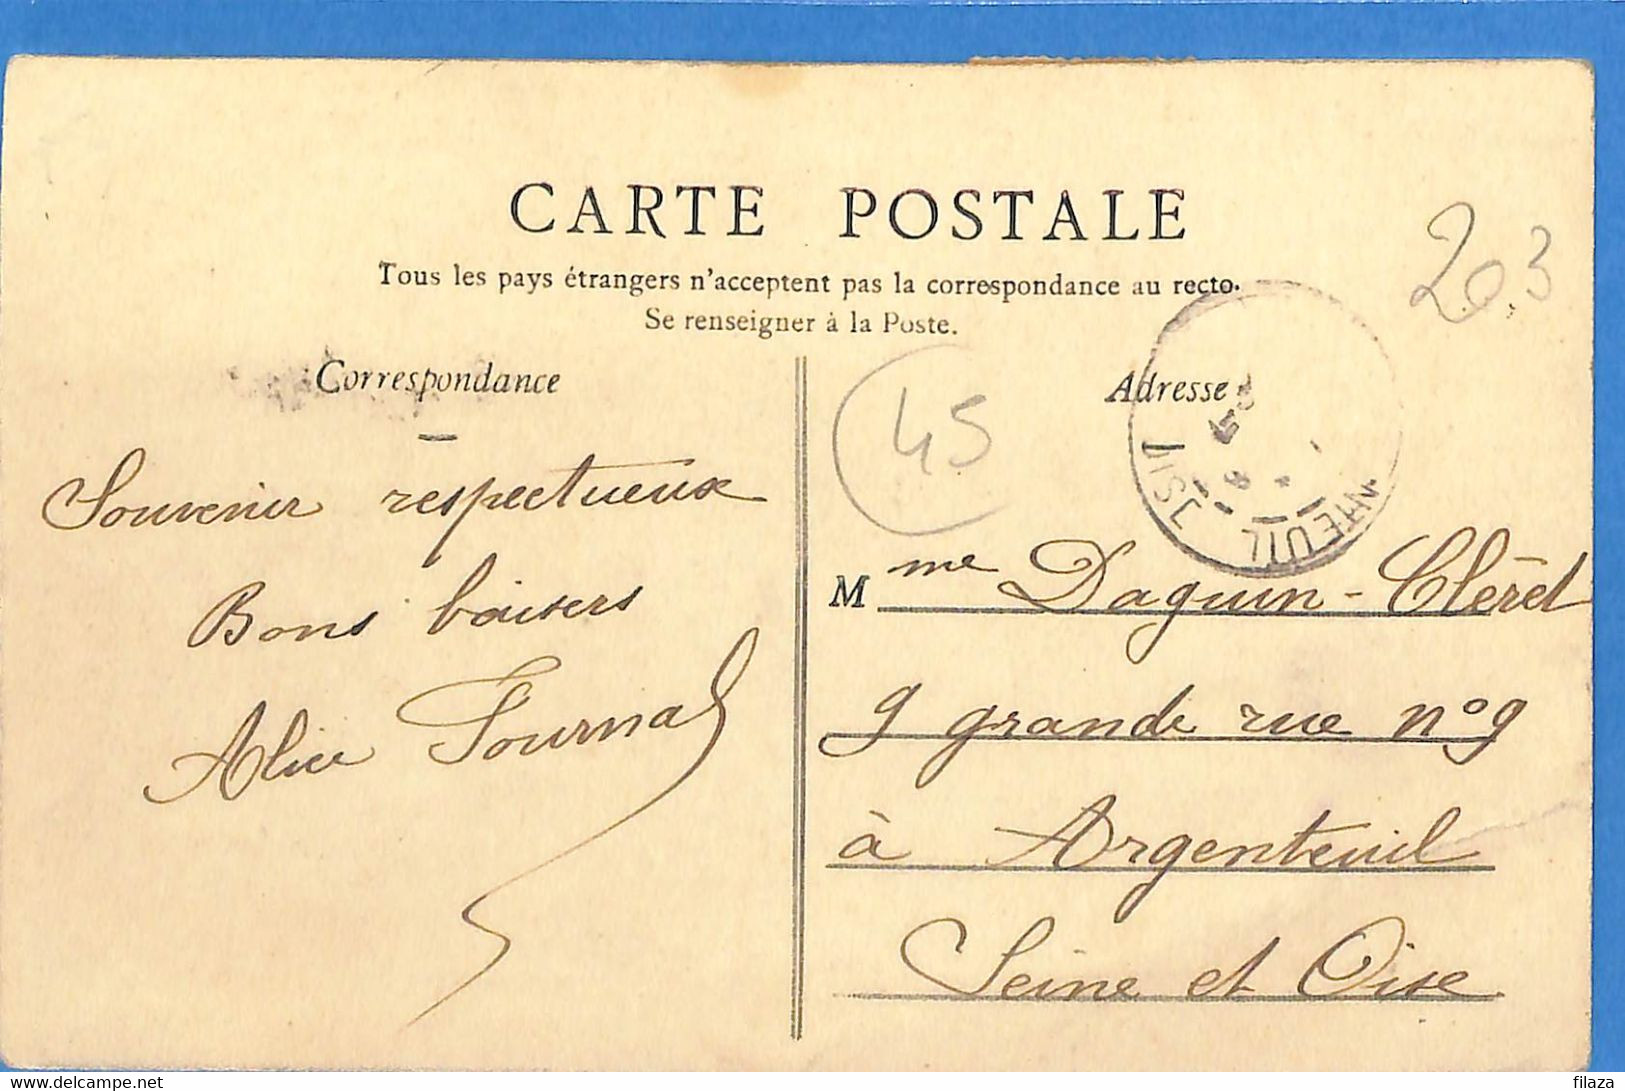 CARTE POSTALE
Tous les pays étrangers n'acceptent pas la correspondance au recto.
Se renseigner à la Poste.
Correspondance
Adresse
203
45
Souvenir respectueux
Bons baisers
Alice Fournal
Mme Daguin-Cléret
9 grande rue n° 9
à Argenteuil
Seine et Oise
NTEUIL
filaza